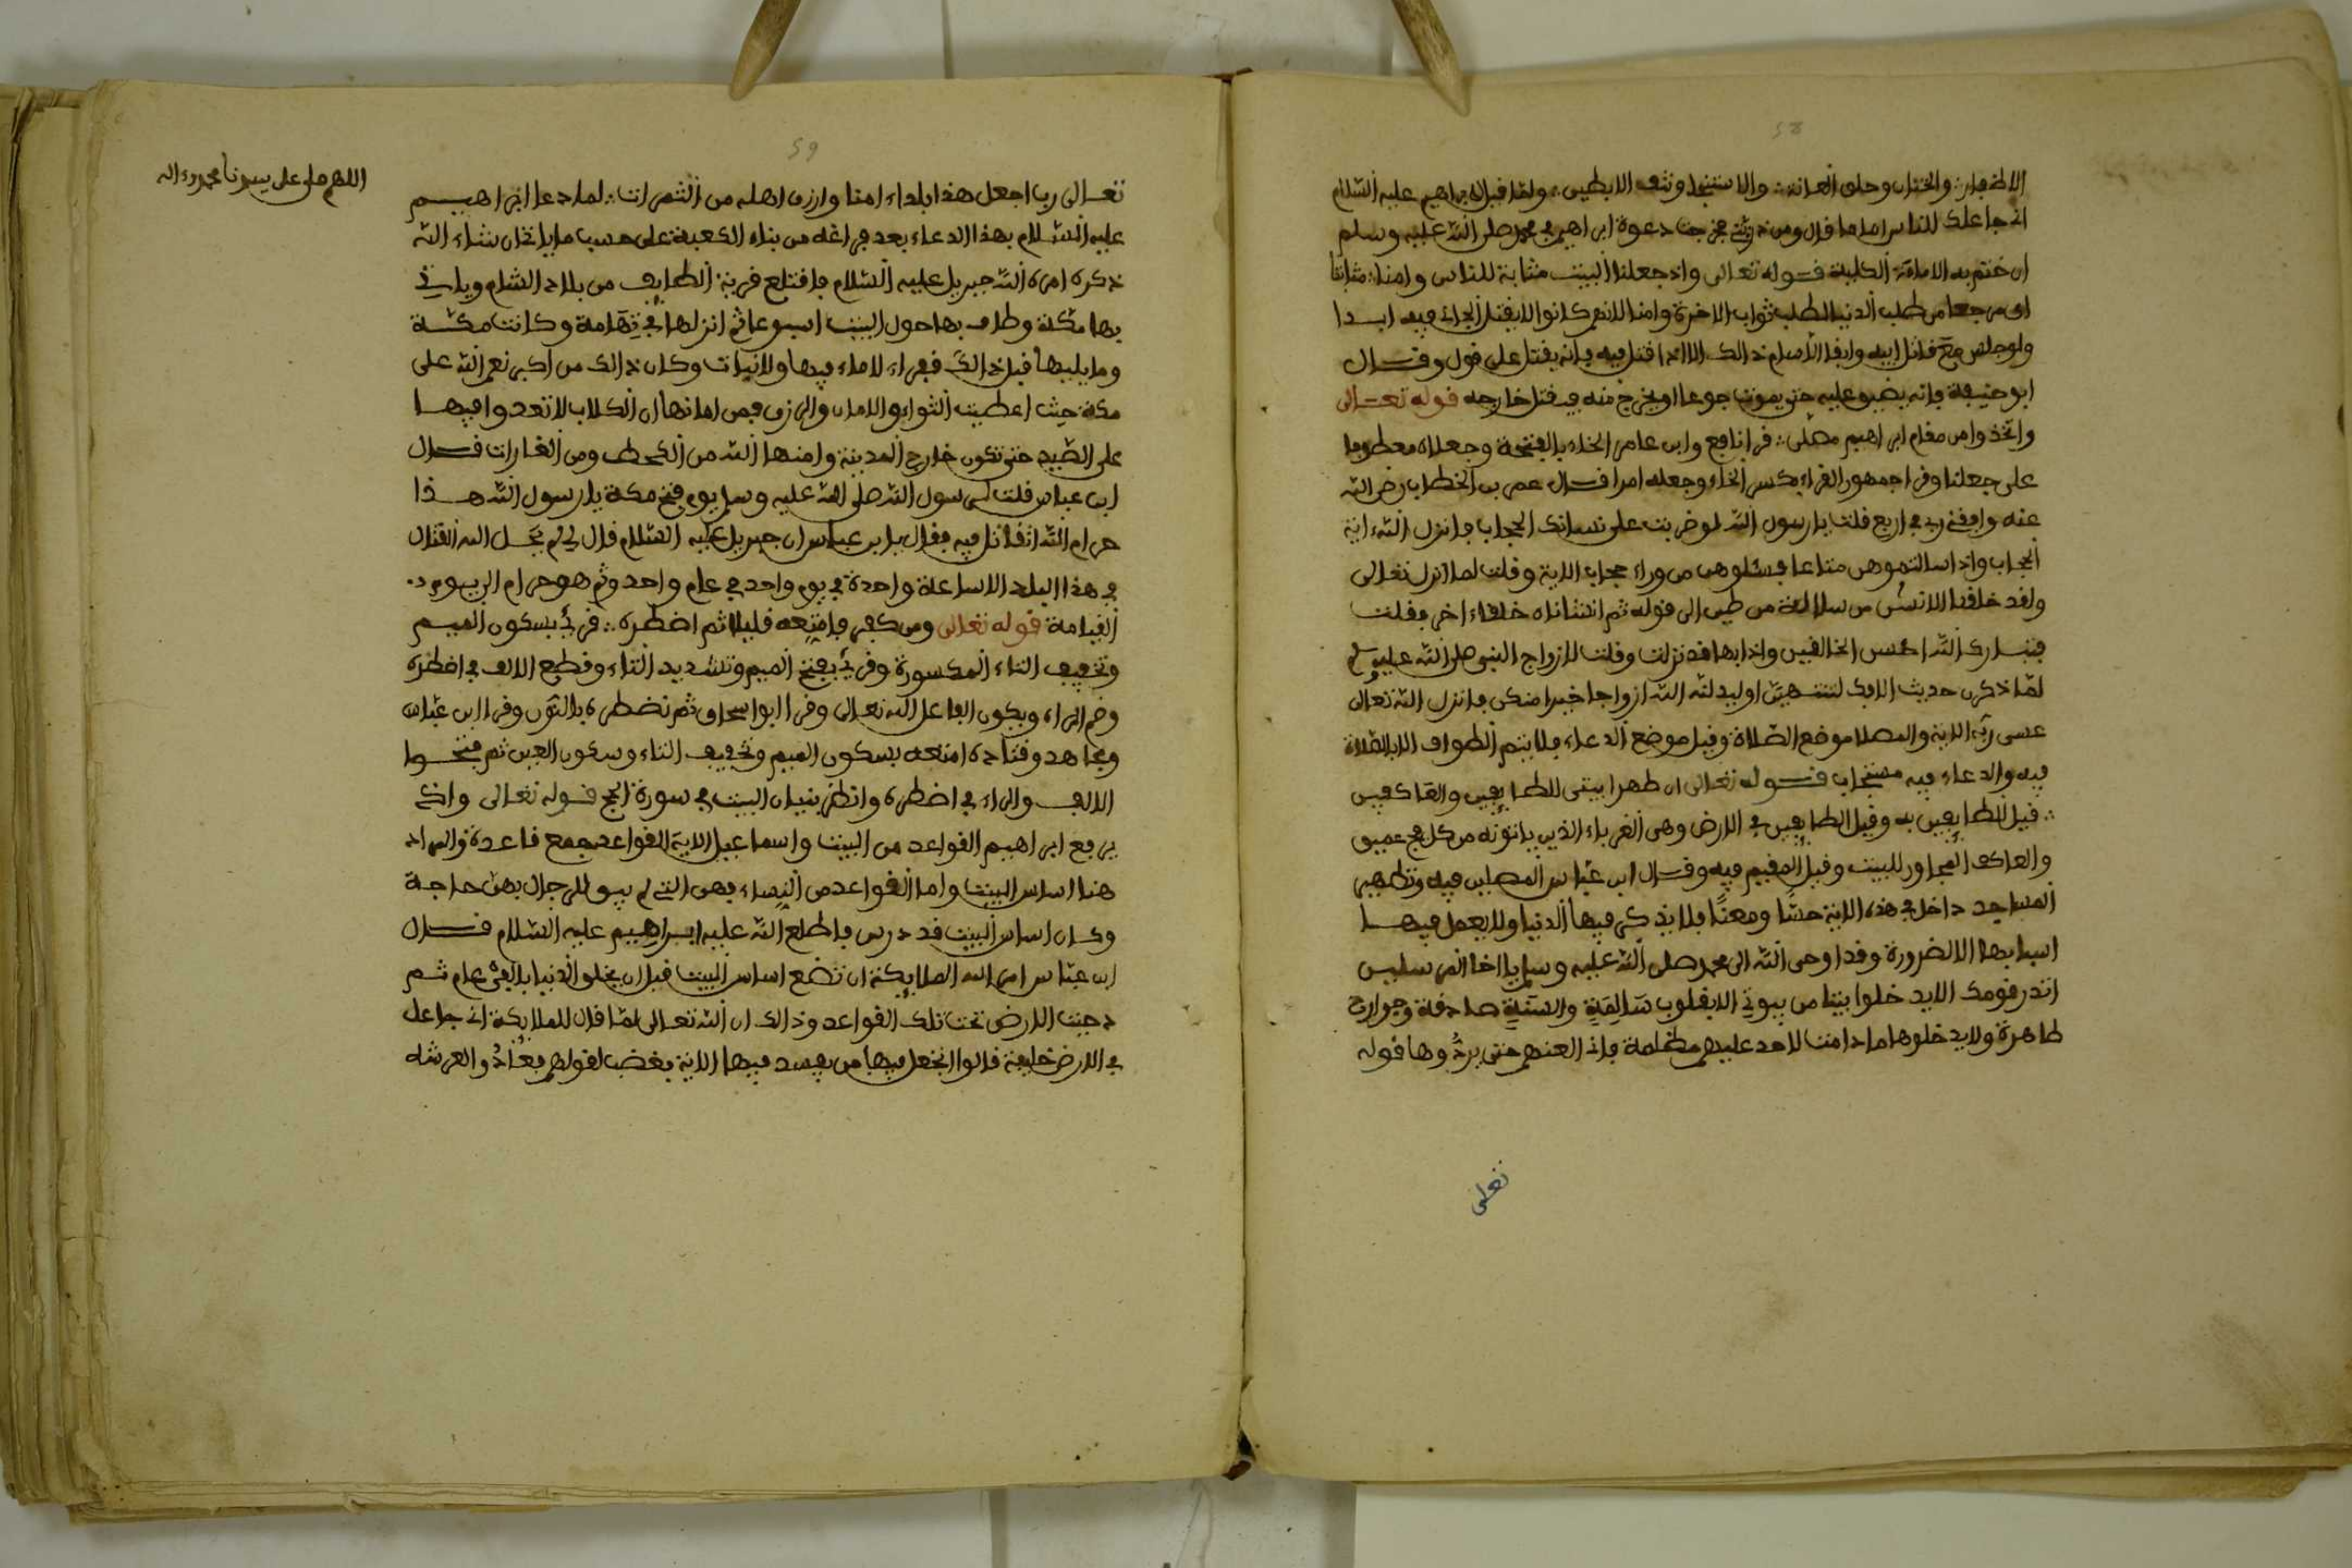 58
الاظفار ∴ والختان وحلق العانة ∴ والاستنجا ونتف الابطين ∴ ولما قيل لابراهيم عليه السلام
اني جاعلك للناس اماما قال ومن ذريتي دعوة ابراهيم في محمد صلى الله عليه وسلم
ان ختم به الامامة الكلية قوله تعالى واذ جعلنا البيت مثابة للناس وامنا ∴ مثابتا
اي مرجعا من طلب الدنيا لطلب ثواب الاخرة وامنا لانهم كانوا لا يقتل الجاني فيه ابدا
ولو جلس مع قاتل ابيه وابقا الاسلام ذالك الا اذا قتل فيه فانه يقتل على قول وقال
ابو حنيفة فانه يضيق عليه حتى يموت جوعا او يخرج منه فيقتل خارجه قوله تعالى
واتخذوا من مقام ابراهيم مصلى ∴ قرا نافع وابن عامر الخاء بالفتحة وجعلاه معطوفا
على جعلنا وقرا جمهور القراء بكسر الخاء وجعله امرا قال عمر بن الخطاب رضي الله
عنه وافقني ربي في اربع قلت يا رسول الله لو ضربت على نسائك الحجاب فانزل الله ءاية
الحجاب واذا سالتموهن متاعا فسئلوهن من وراء حجاب الاية وقلت لما انزل تعالى
ولقد خلقنا الانسن من سلالة من طين الى قوله ثم انشاناه خلقا ءاخر فقلت
فتبارك الله احسن الخالقين واذا بها قد نزلت وقلت لازواج النبي صلى الله عليه وسلم
لما ذكرن حديث الافك لتنتهين او ليبدلنه الله ازواجا خيرا منكن فانزل الله تعالى
عسى ربه الاية والمصلا موضع الصلاة وقيل موضع الدعاء فلا يتم الطواف الا بالصلاة
فيه والدعاء فيه مستجاب قوله تعالى ان طهرا بيتي للطايفين والعاكفين
∴ قيل الطايفين به وقيل الطايفين في الارض وهي الغرباء الذين ياتونه من كل فج عميق
والعاكف المجاور للبيت وقيل المقيم فيه وقال ابن عباس المصلين فيه وتطهير
المساجد داخل في هذه الاية حسًا ومعنًا فلا يذكر فيها الدنيا ولا يعمل فيها
اسبابها الا لضرورة وقد اوحى الله الى محمد صلى الله عليه وسلم يا اخا المرسلين
انذر قومك الا يدخلوا بيتا من بيوتي الا بقلوب سالمةٍ والسنةٍ صادقة وجوارح
طاهرة ولا يدخلوها ما دامت لاحد عليهم مظلمة فاني العنهم حتى يردُّوها قوله
تعلى
59
اللهم صل على سيدنا محمد وءاله
تعالى رب اجعل هذا بلداء امنا وارزق اهله من الثمرات ∴ لما دعا ابراهيم
عليه السلام بهذا الدعاء بعد فراغه من بناء الكعبة على حسب ما ياتي ان شاء الله
ذكره امره الله جبريل عليه السلام فاقتلع قرية الطايف من بلاد الشام وياتي
بها مكة وطاف بها حول البيت اسبوعا ثم انزلها في تهامة وكانت مكة
وما يليها قبل ذالك قفراء لا ماء فيها ولا نبات وكان ذالك من اكبر نعم الله على
مكة حيث اعطيت الثواب والامان والرزق فمن امانها ان الكلاب لا تعدوا فيها
على الصيد حتى تكون خارج المدينة وامنها الله من القحط ومن الغارات قال
ابن عباس قلت لرسول الله صلى الله عليه وسلم يوم فتح مكة يا رسول الله هذا
حرام الله اتقاتل فيه فقال يا ابن عباس ان جبريل عليه السلام قال لي لم يحل الله القتال
في هذا البلد الا ساعة واحدة في يوم واحد في عام واحد وثم هو حرام الى يوم
القيامة قوله تعالى ومن كفر فامتعه قليلا ثم اضطره ∴ قرئ بسكون الميم
وتخفيف التاء المكسورة وقرئ بفتح الميم وتشديد التاء وقطع الالف في اضطره
وضم الراء ويكون الفاعل الله تعالى وقرا ابو اسحاق ثم نضطره بالنون وقرا ابن عباس
ومجاهد وقتادة امتعه بسكون الميم وتخفيف التاء وسكون العين ثم فتحوا
الالف والراء في اضطره وانظر بنيان البيت في سورة الحج قوله تعالى واذ
يرفع ابراهيم القواعد من البيت واسماعيل الاية القواعد جمع قاعدة والمراد
هنا اساس البيت واما القواعد من النساء فهن التي لم يبق للرجال بهن حاجة
وكان اساس البيت قد درس فاطلع الله عليه ابراهيم عليه السلام قال
ابن عباس امر الله الملايكة ان تضع اساس البيت قبل ان يخلق الدنيا بالفي عام ثم
دحيت الارض تحت تلك القواعد وذالك ان الله تعالى لما قال للملايكة اني جاعل
في الارض خليفة قالوا اتجعل فيها من يفسد فيها الاية بغضب لقولهم والعرشه